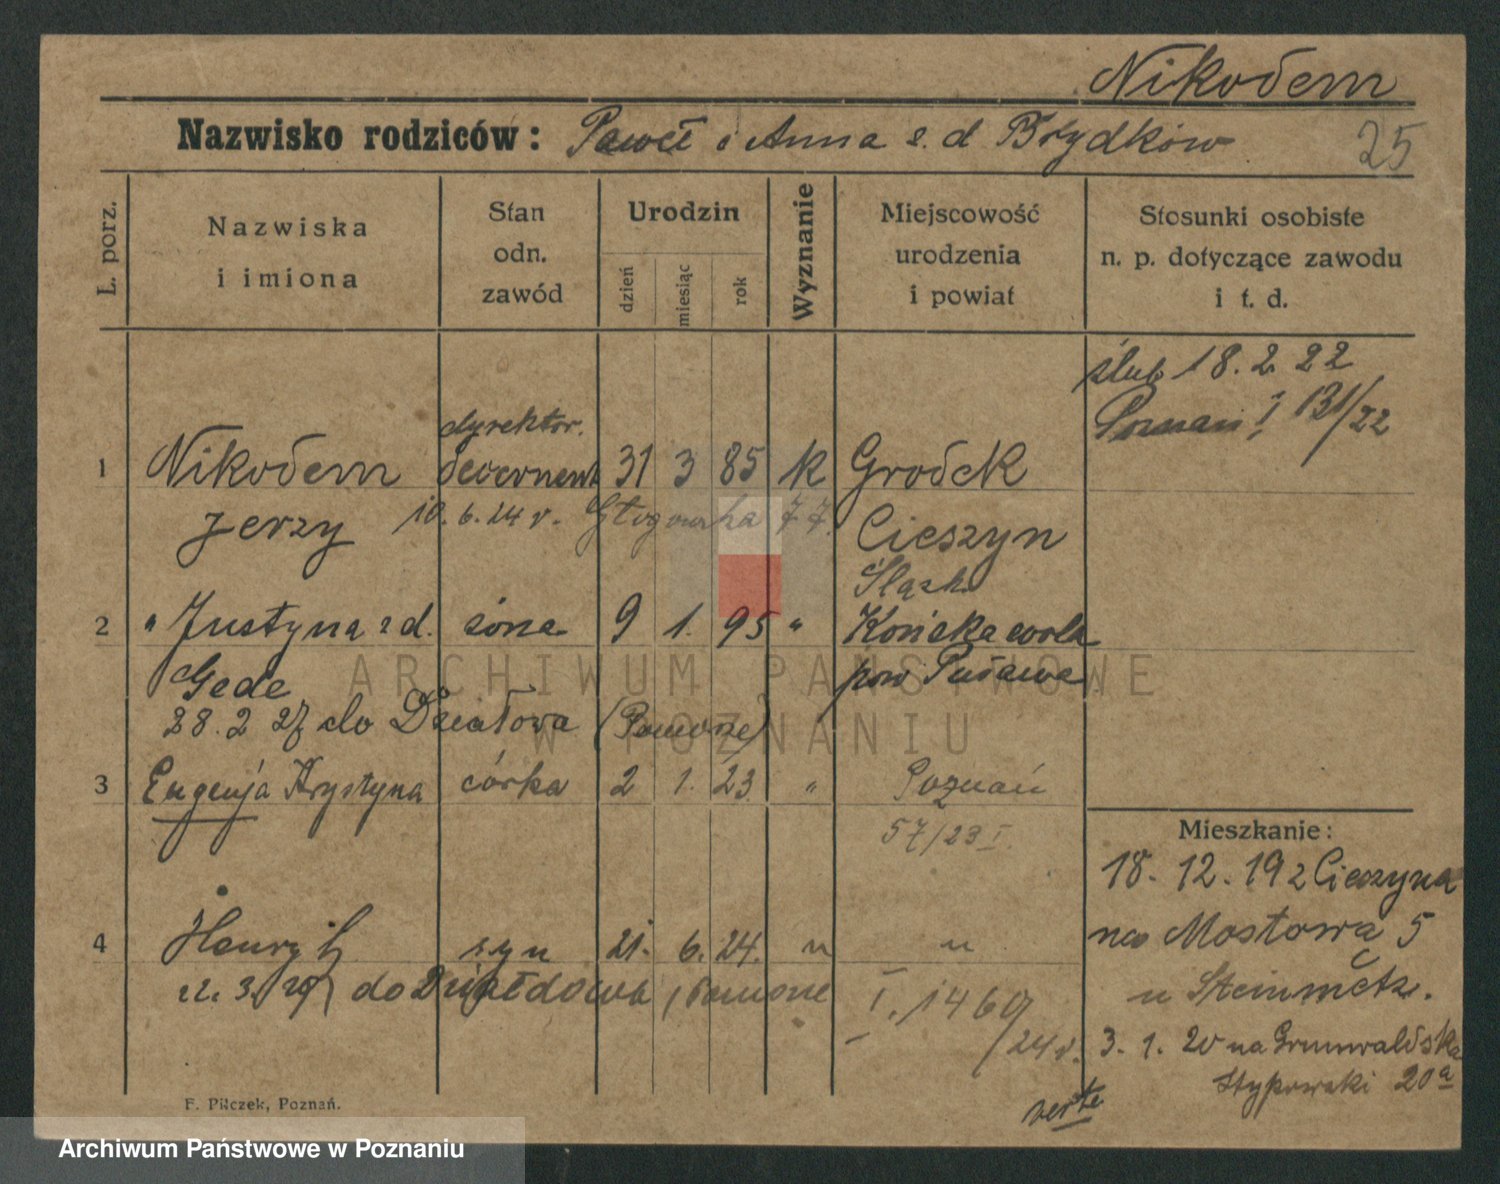 Nikodem
Nazwisko rodziców: Paweł i Anna z. d Brydków
25
L. porz.
Nazwiska
i imiona
Stan
odn.
zawód
Urodzin
dzień
miesiąc
rok
Wyznanie
Miejscowość
urodzenia
i powiat
Stosunki osobiste
n. p. dotyczące zawodu
i t. d.
ślub 18. 2. 22
Poznań I, 131/22
dyrektor.
1 Nikodem decernent 31 3 85 k Grodek
Jerzy 10. 6. 24 r. Głogowska 77. Cieszyn
Śląsk
2 " Justyna z d. żona 9 1. 95 " Końska wola
Gede pow Puławe
28. 2 27 do Działowa (Pomorze)
3 Eugenja Krystyna córka 2 1. 23 " Poznań
57/23 I.
Mieszkanie:
18. 12. 19 z Cieszyna
na Mostową 5
u Steinmetz.
3. 1. 20 na Grunwaldska
Stypowski 20a
4 Henryk syn 21. 6. 24. " "
3. 27 do Działdowa, Pomorze I. 1460
/24 r.
verte
F. Pilczek, Poznań.
ARCHIWUM PAŃSTWOWE
W POZNANIU
Archiwum Państwowe w Poznaniu